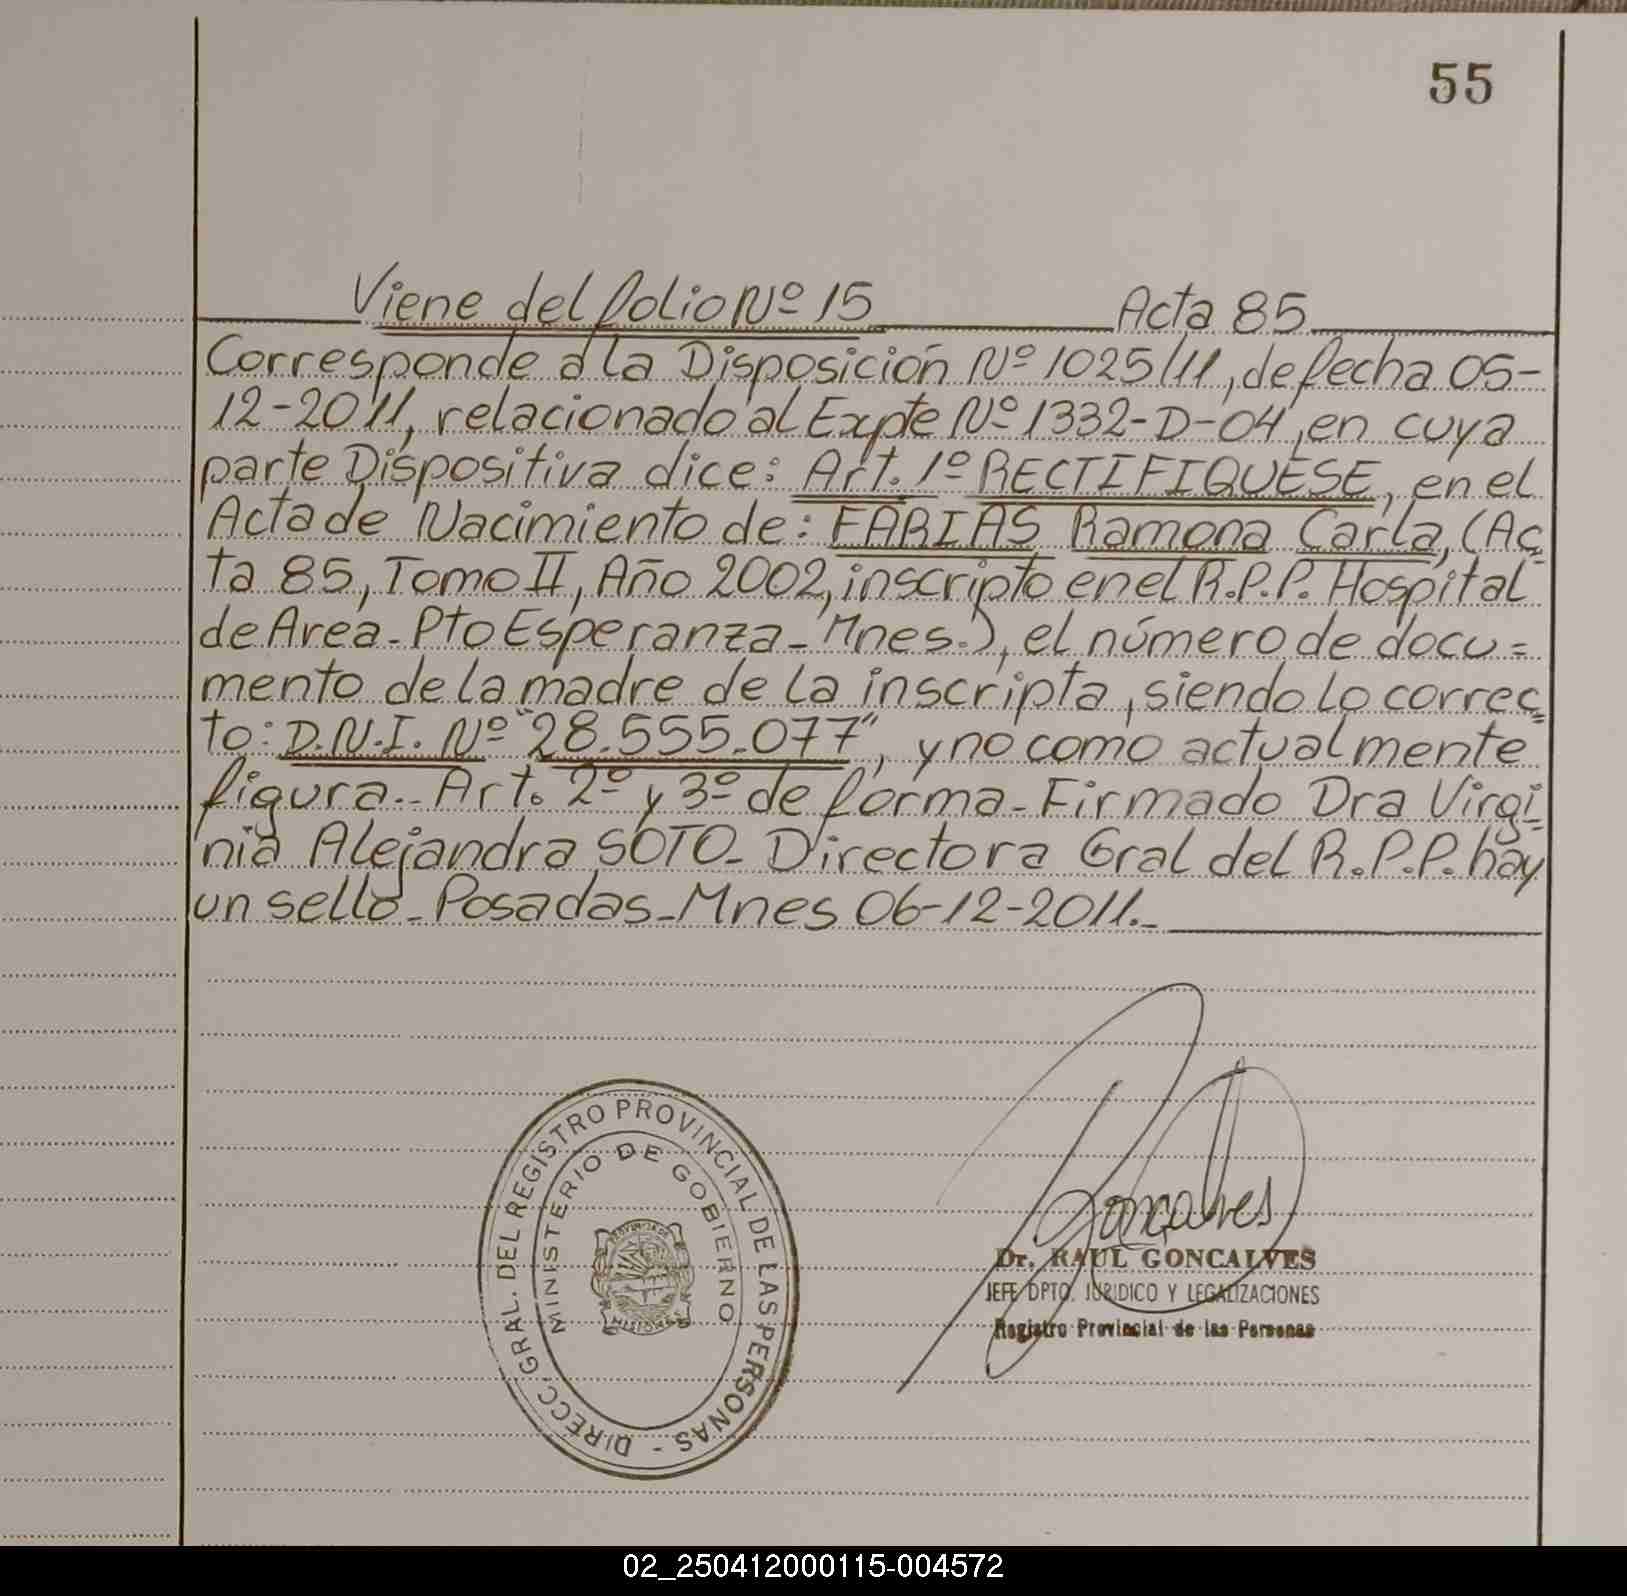 55
Viene del folio Nº 15 Acta 85
Corresponde a la Disposición Nº 1025/11, de fecha 05-
12-2011, relacionado al Expte Nº 1332-D-04, en cuya
parte Dispositiva dice: Art. 1º RECTIFIQUESE, en el
Acta de Nacimiento de: FARIAS Ramona Carla, (Ac=
ta 85, Tomo II, Año 2002, inscripto en el R.P.P. Hospital
de Area - Pto Esperanza - Mnes.), el número de docu=
mento de la madre de la inscripta, siendo lo correc=
to: D.N.I. Nº "28.555.077", y no como actualmente
figura.- Art. 2º y 3º de forma - Firmado Dra Virgi=
nia Alejandra SOTO - Directora Gral del R.P.P. hay
un sello - Posadas - Mnes 06-12-2011.-
DIRECC. GRAL. DEL REGISTRO PROVINCIAL DE LAS PERSONAS -
MINISTERIO DE GOBIERNO
PROVINCIA DE
MISIONES
Goncalves
Dr. RAUL GONCALVES
JEFE DPTO. JURIDICO Y LEGALIZACIONES
Registro Provincial de las Personas
02_250412000115-004572